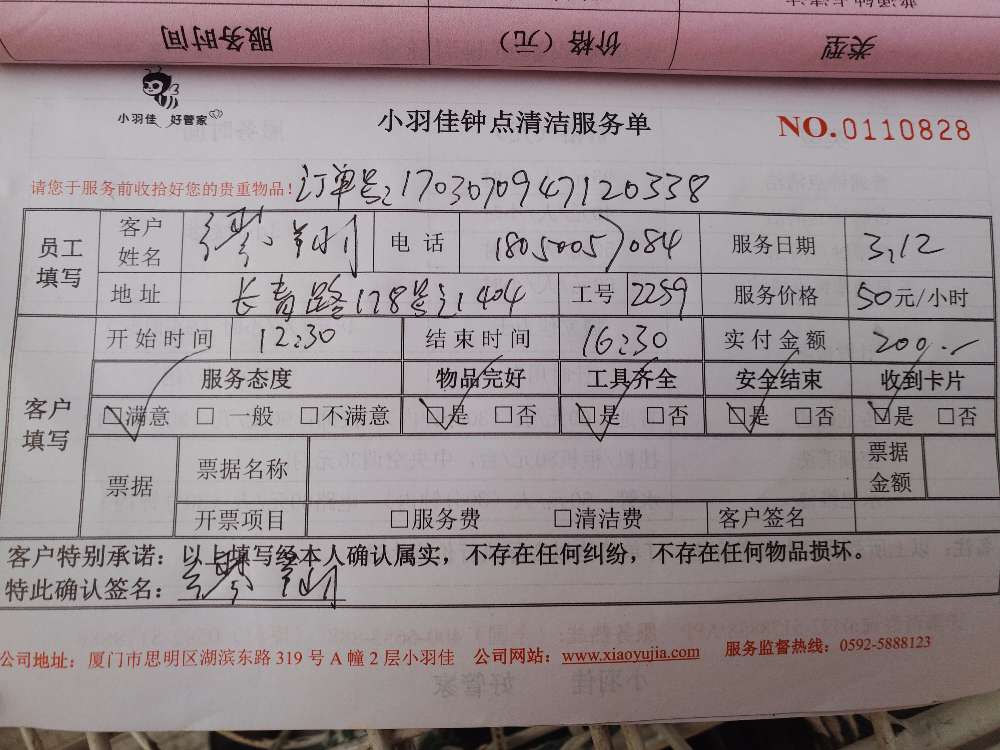 服务时间 价格（元） 类型
小羽佳 好管家
小羽佳钟点清洁服务单
NO.0110828
请您于服务前收拾好您的贵重物品！
订单号:170307094712033​8
员工填写 客户姓名 电话 18050057084 服务日期 3.12
地址 长青路178号之1404 工号 2259 服务价格 50元/小时
客户填写 开始时间 12:30 结束时间 16:30 实付金额 200.-
服务态度 物品完好 工具齐全 安全结束 收到卡片
☑满意 □一般 □不满意 ☑是 □否 ☑是 □否 ☑是 □否 ☑是 □否
票据 票据名称 票据金额
开票项目 □服务费 □清洁费 客户签名
客户特别承诺：以上填写经本人确认属实，不存在任何纠纷，不存在任何物品损坏。
特此确认签名：
公司地址：厦门市思明区湖滨东路 319 号 A 幢 2 层小羽佳 公司网站：www.xiaoyujia.com 服务监督热线：0592-5888123